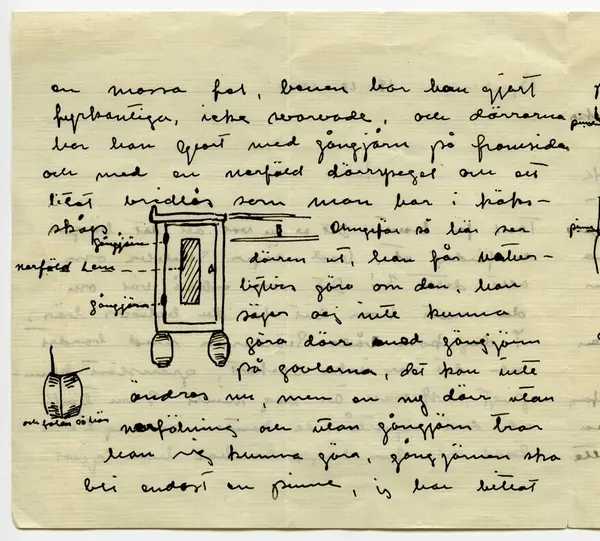 en massa fel, benen har han gjort
fyrkantiga, icke svarvade, och dörrarna
har han gjort med gångjärn på framsidan
och med en nerföld dörrspegel om ett
litet som man har i köks-
skåp
gångjärn
nerföld
gångjärn
Ungefär så här ser
dörren ut, han får natur-
ligtvis göra om den, han
säger sej inte kunna
göra dörr med gångjärn
på gavlarna, det kan inte
ändras nu, men en ny dörr utan
nerfölning och utan gångjärn tror
han sig kunna göra, gångjärnen ska
bli endast en pinne, har
och så här